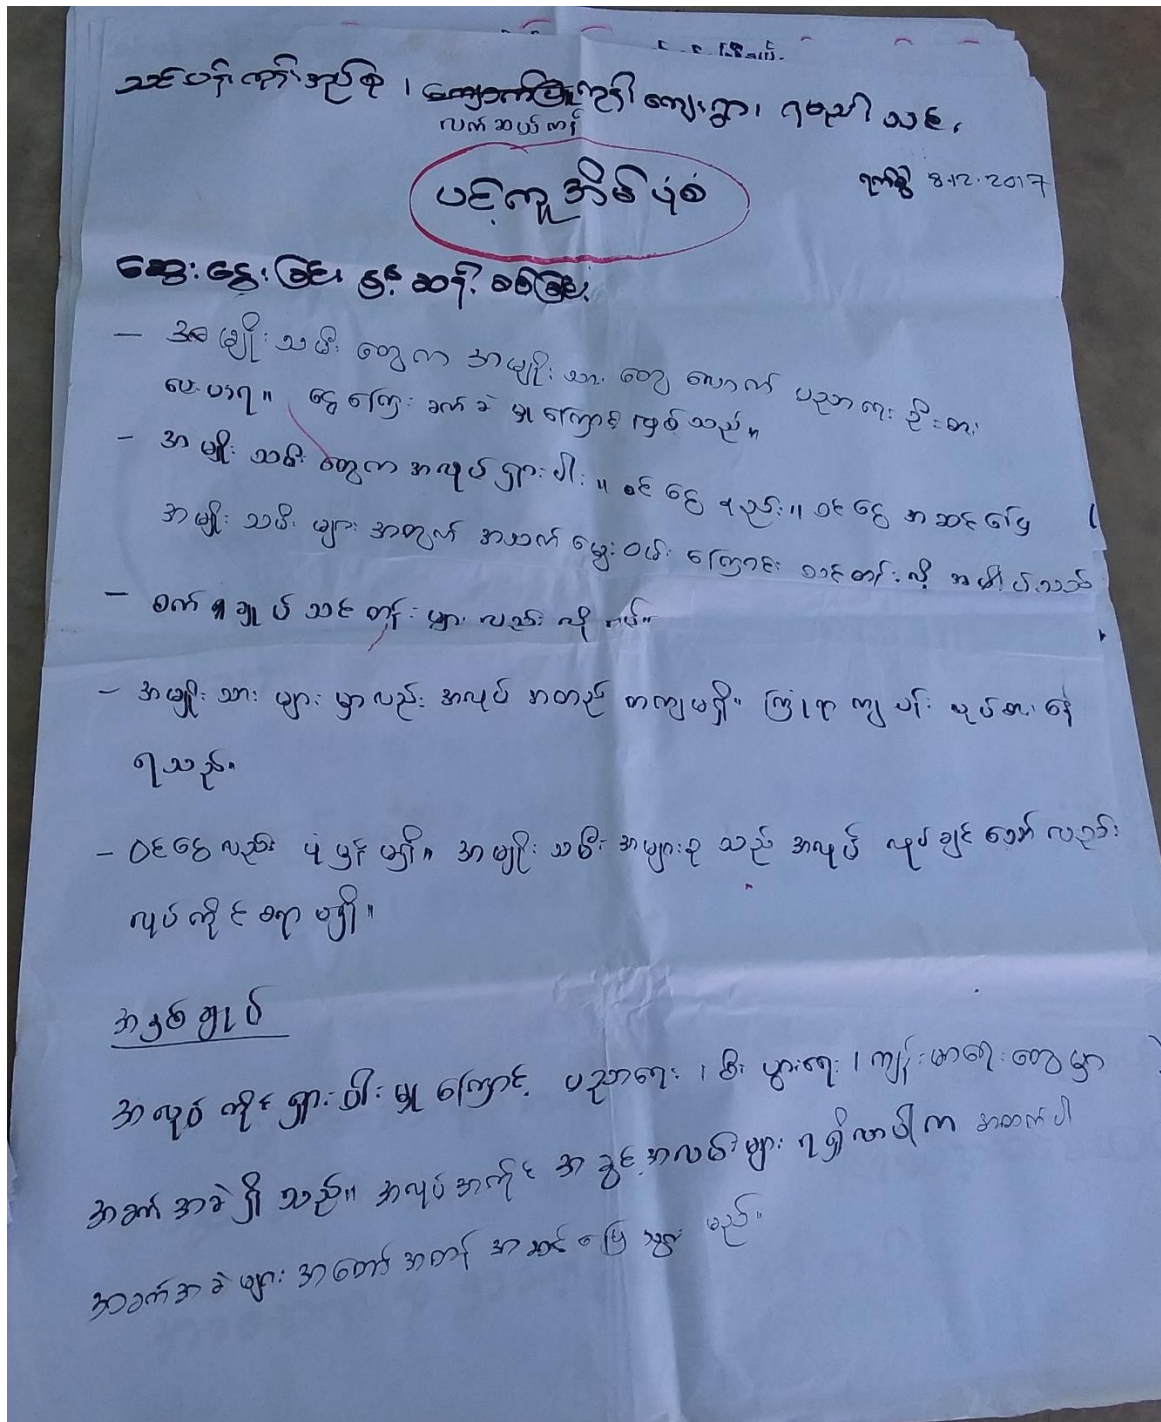 သင်ပန်းကုန်းအုပ်စု၊ ကုန်းကျေးရွာ၊ ရမည်းသင်း
လက်ဆယ်ကန်
ပင့်ကူအိမ်ပုံစံ
ရက်စွဲ 8.12.2017
ဆွေးနွေးခြင်း နှင့် ဆန်းစစ်ခြင်း
– အမျိုးသမီးတွေက အမျိုးသားတွေလောက် ပညာရေး ဦးစား
ပေးမှာရ။ ငွေကြေးခက်ခဲမှုကြောင့်ဖြစ်သည်။
– အမျိုးသမီးတွေက အလုပ်ရှားပါး။ ဝင်ငွေနည်း။ ဝင်ငွေအဆင်ပြေ
အမျိုးသမီးများအတွက် အသက်မွေးဝမ်းကြောင်း သင်တန်းလို့ အပ်သည်
– စက်ချုပ်သင်တန်းများလည်းလိုအပ်။
– အမျိုးသားများမှာလည်း အလုပ်အတည်တကျမရှိ။ ကြုံရာကျပန်း လုပ်စားနေ
ရသည်။
– ဝင်ငွေလည်း ပုံမှန်မရှိ။ အမျိုးသမီးအများစုသည် အလုပ် လုပ်ချင်သော်လည်း
လုပ်ကိုင်စရာမရှိ။
အနှစ်ချုပ်
အလုပ်ကိုင်ရှားပါးမှုကြောင့် ပညာရေး၊ စီးပွားရေး၊ ကျန်းမာရေးတွေမှာ
အခက်အခဲရှိသည်။ အလုပ်အကိုင် အခွင့်အလမ်းများ ရရှိလာပါက အထက်ပါ
အခက်အခဲများ အတော်အတန် အဆင်ပြေသွားမည်။